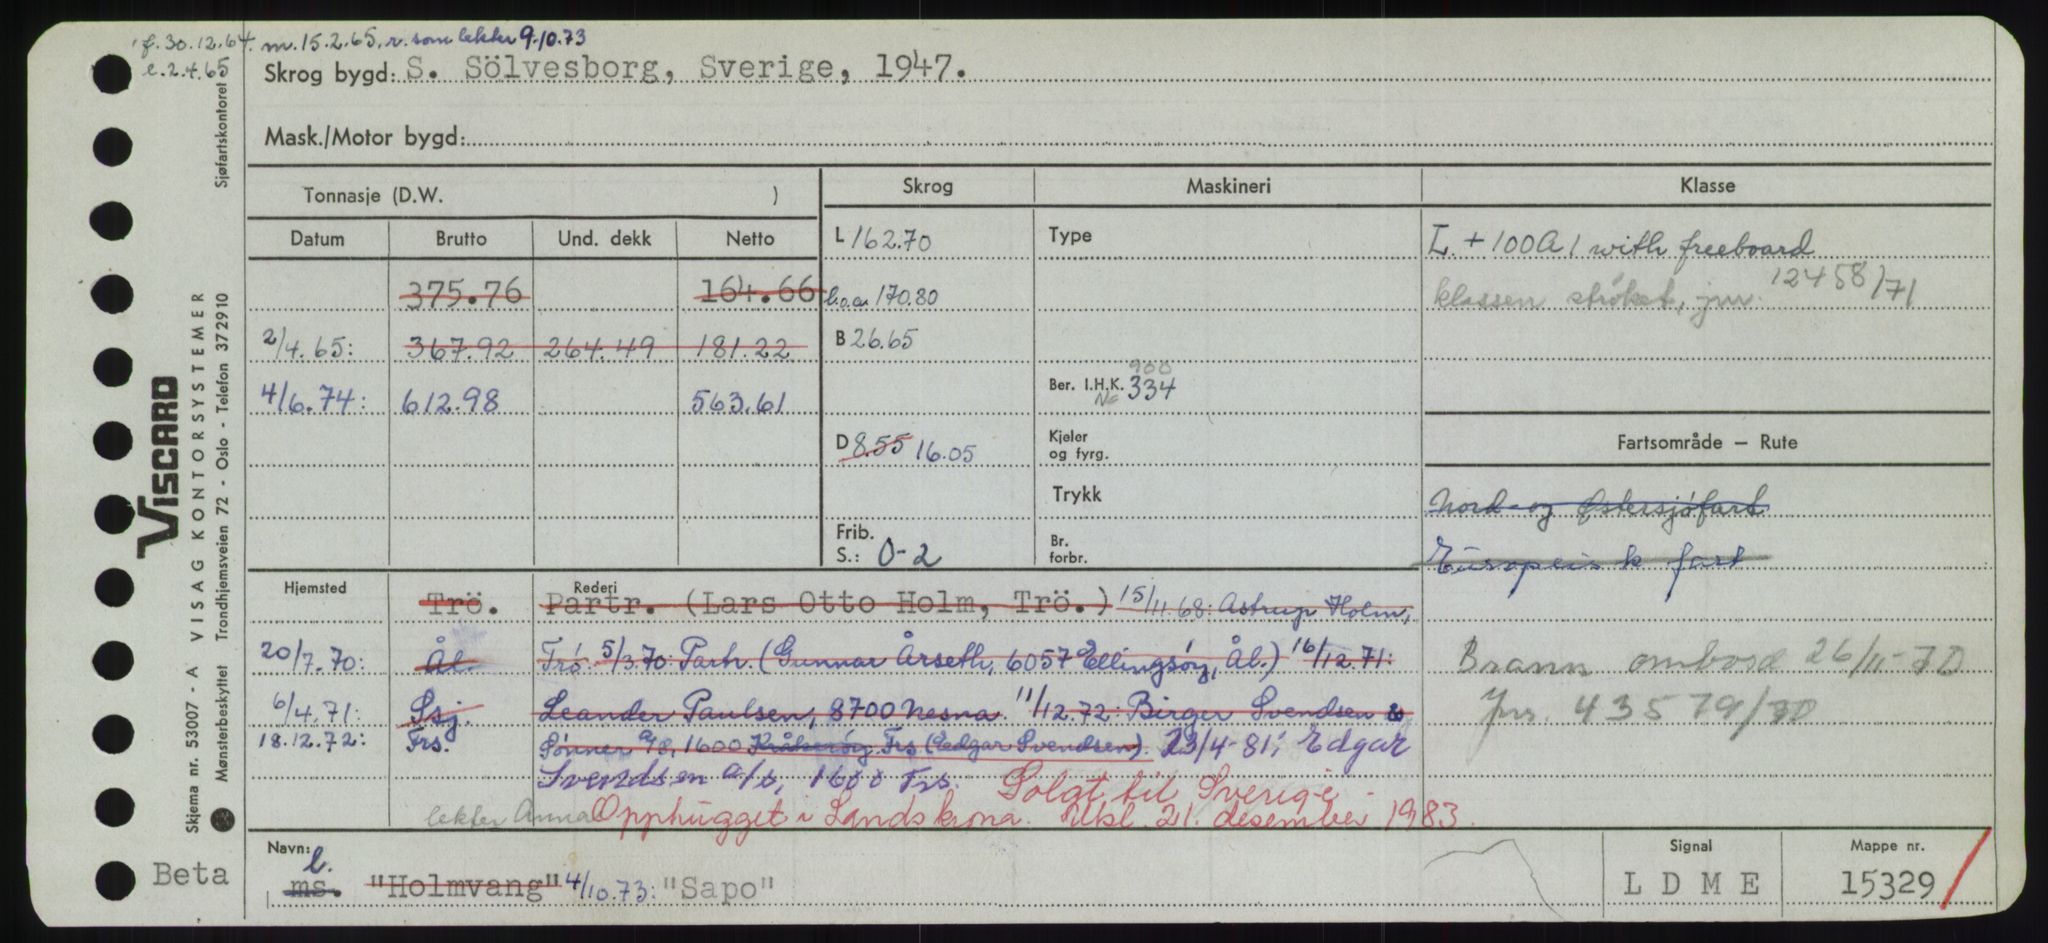 f. 30.12.64. m. 15.2.65. r. som lekter 9.10.73
e. 2.4.65
Skrog bygd: S. Sölvesborg, Sverige, 1947.
Mask./Motor bygd:
Tonnasje (D.W. )
Skrog Maskineri Klasse
Datum Brutto Und. dekk Netto
L 162.70 Type L + 100A1 with freeboard
375.76 164.66 l.o.a. 170.80 klassen strøket, jnr. 12458/71
2/4.65: 367.92 264.49 181.22 B 26.65
4/6.74: 612.98 563.61 Ber. I.H.K. 334 900
D 8.55 16.05 Kjeler og fyrg. Fartsområde — Rute
Trykk Nord- og Østersjøfart
Frib. S.: 0-2 Br. forbr. Europeisk fart
Hjemsted Rederi
Trö. Partr. (Lars Otto Holm, Trö.) 15/11.68: Astrup Holm,
20/7.70: Ål. Trö. 5/3.70: Partr. (Gunnar Årseth, 6057 Ellingsøy, Ål.) 16/12.71: Brann ombord 26/11-70
6/4.71: Ssj. Leander Paulsen, 8700 Nesna. 11/12.72: Birger Svendsen & Jnr. 43579/70
18.12.72: Frs. Sønner a/s, 1600 Kråkerøy Frs (Edgar Svendsen). 23/4-81: Edgar
Svendsen a/s, 1600 Frs. Solgt til Sverige -
lekter Anna Opphugget i Landskrona. Utsl. 21. desember 1983.
Navn: l. Signal Mappe nr.
Beta ms. "Holmvang" 4/10.73: "Sapo" LDME 15329
Skjema nr. 53007 - A VISAG KONTORSYSTEMER
VISCARD
Mønsterbeskyttet Trondhjemsveien 72 - Oslo - Telefon 372910
Sjøfartskontoret